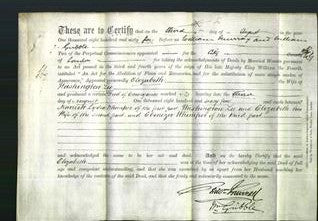 These are to Certify that on the third day of August in the year
One thousand eight hundred and sixty before us William Murray and William
Gribble
Two of the Perpetual Commissioners appointed for the City of
London for taking the acknowledgments of Deeds by Married Women pursuant
to an Act passed in the third and fourth years of the reign of His late Majesty King William the Fourth,
intituled "An Act for the Abolition of Fines and Recoveries, and for the substitution of more simple modes of
Assurance," Appeared personally Elizabeth
Washington Lee
and produced a certain Deed of Conveyance marked bearing date the third
day of August One thousand eight hundred and sixty and made between
Lydia Whimper of the first part Washington Lee and Elizabeth his
Wife of the second part and Ebenezer Whimper of the third part
and acknowledged the same to be her act and deed. And we hereby Certify that the said
Elizabeth was at the time of her acknowledging the said Deed of full
age and competent understanding, and that she was examined by us apart from her Husband touching her
knowledge of the contents of the said Deed, and that she freely and voluntarily consented to
Murray
Wm Gribble